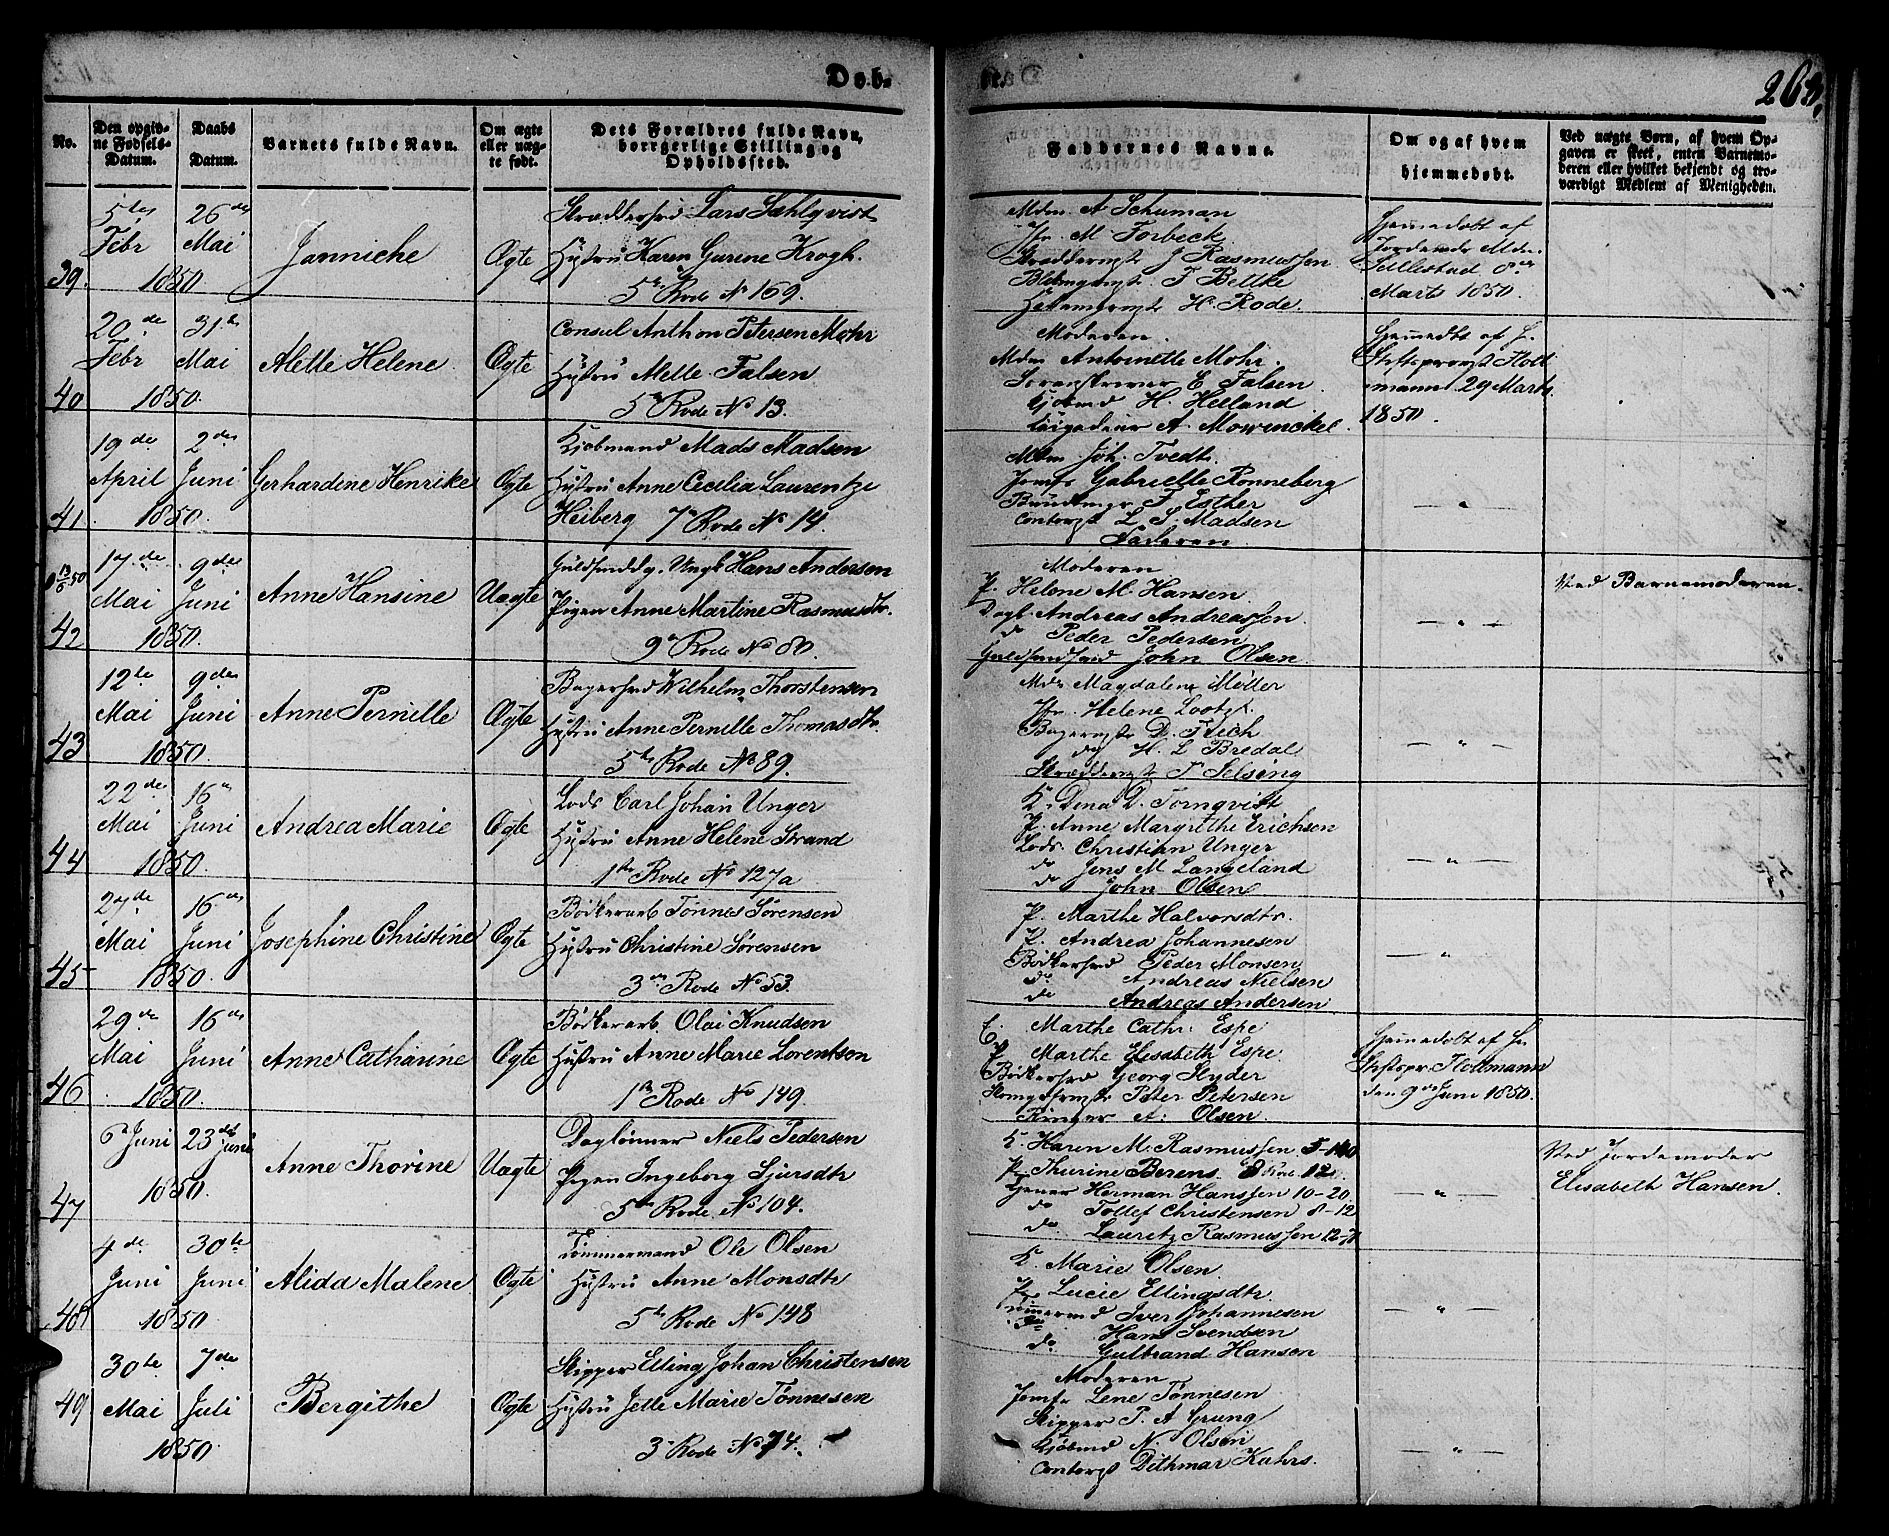 Døb-
263.
No.
Den opgiv-
ne Fødsels-
Datum.
Daabs
Datum.
Barnets fulde Navn.
Om ægte
eller uæg-
te født.
Dets Forældres fulde Navn,
borrgerlige Stilling og
Opholdssted.
Faddernes Navne.
Om og af hvem
hjemmedøbt.
Ved uægte Børn, af hvem Op-
gaven er skeet, enten Barnemo-
deren eller hvilket bekjendt og tro-
værdigt Medlem af Menigheden.
39.
5te Febr
26de Mai
1850
Janniche
Ægte
Lars Sahlqvist
Hustru Karen Gurine Krogh.
5te Rode No 169.
Mdm. A Schuman
Jfr M Torbeck
J Rasmussen
F Bettke
H. Rode.
Hjemedøbt af
Jordemdr Mdm.
Sellestad 8de
Marts 1850.
40
20de Febr
31te Mai
1850.
Alette Helene
Ægte
Consul Anthon Petersen Mohr
Hustru Mette Falsen
5te Rode No 13.
Moderen.
Mdm Antoinette Mohr.
Sorenskriver E Falsen.
Kjøbmd H. Heiland
A. Mowinckel.
Hjemedøbt af H.
Stiftsprovst Holt
mann 29 Marts
1850.
41.
19de April
2den Juni
1850.
Gerhardine Henrike
Ægte
Kjøbmand Mads Madsen
Hustru Anne Cecilia Laurentze
Heiberg 7de Rode No 14.
Mdm Joh. Tvedt.
Jomfr Gabrielle Ronneberg
F Esther
Contorgt L. S. Madsen
Faderen
— " —
42
17de Mai
9de Juni
1850.
Anne Hansine
Uægte
Ungk Hans Andersen
Pigen Anne Martine Rasmusdtr.
9de Rode No 80.
Moderen
P. Helene M. Hansen.
Andreas Andreassen.
do Peder Pedersen
John Olsen
— " —
Ved Barnemoderen.
43
12te Mai
9de Juni
1850.
Anne Pernille
Ægte
Bagersvd Wilhelm Thorstensen
Hustru Anne Pernille Thomasdtr.
5te Rode No 89.
Mdm Magdalene Møller
Jfr. Helene Lootz.
D. Flech
do H. L Bredal
P Selsing
— " —
44
22de Mai
16de Juni
1850.
Andrea Marie
Ægte
Lods Carl Johan Unger
Hustru Anne Helene Strand
1te Rode No 127a
K. Dina D. Tornqvist
P. Anne Margrethe Erichsen
Lods Christian Unger
do Jens M Langeland
do John Olsen
— " —
45
27de Mai
16de Juni
1850.
Josephine Christine
Ægte
Bødkerarb Tønnes Sørensen
Hustru Christine Sørensen
3die Rode No 53.
P. Marthe Halvorsdtr.
P. Andrea Johannesen
Bødkersvd Peder Monsen
do Andreas Nielsen
do Andreas Andersen
— " —
46
29de Mai
16de Juni
1850.
Anne Catharine
Ægte
Bødkerarb. Olai Knudsen
Hustru Anne Marie Lorentson
1te Rode No 149.
Marthe Cathr: Espe
P Marthe Elisabeth Espe.
Bødkersvd Georg Slyder
Peter Petersen
Ringer A: Olsen.
Hjemedøbt af Hr
Stiftspr. Holtmann
den 9de Juni 1850.
47
6 Juni
23de Juni
1850.
Anne Thorine
Uægte
Daglønner Niels Pedersen
Pigen Ingeborg Sjursdtr
5te Rode No 104.
K. Karen M. Rasmussen 5-140
P. Thurine Berens.
Herman Hanssen 10-20.
do Tollef Christensen 8-12
do Lauritz Rasmussen
— " —
Ved Jordemoder
Elisabeth Hansen.
48
4de Juni
30te Juni
1850
Alida Malene
Ægte
Tømmermand Ole Olsen
Hustru Anne Monsdtr
5te Rode No 148
K. Marie Olsen
P. Lucie Ellingsdtr.
Tømmermd Iver Johannesen
do Hans Svendsen
do Gulbrand Hansen
— " —
49
30te Mai
7de Juli
1850
Bergithe
Ægte
Skipper Elling Johan Christensen
Hustru Jette Marie Tønnesen
3die Rode No 74.
Moderen
Jomfr Lene Tønnesen
Skipper P. A Grung
Kjøbmd N. Olsen
Contorgt Dithmar Kahrs.
— " —